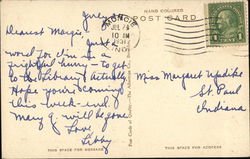 HAND COLORED
POST CARD
MUNCIE
JUL 28
10 AM
1931
IND.
July
Dearest Margie, Just a
word for I'm in a
frightful hurry - to get
to the Library! Actually
Hope you're coming
this week-end!
Mary G. will be gone
Love,
Libby
Miss Margaret
St. Paul
Indiana.
THIS SPACE FOR MESSAGE
THIS SPACE FOR ADDRESS